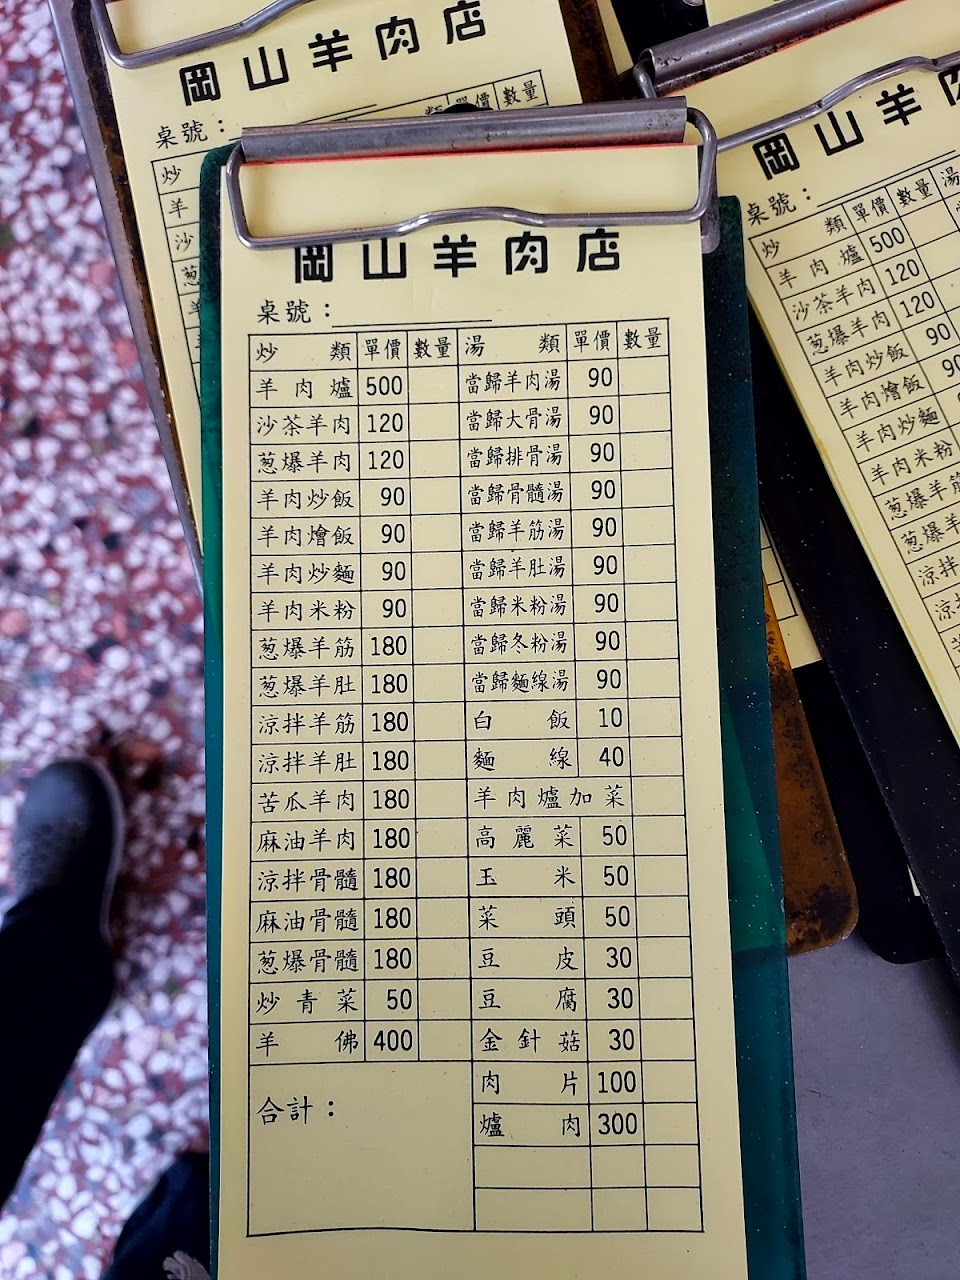 岡山羊肉店
桌號：
炒類 單價 數量 湯類 單價 數量
羊肉爐 500 當歸羊肉湯 90
沙茶羊肉 120 當歸大骨湯 90
葱爆羊肉 120 當歸排骨湯 90
羊肉炒飯 90 當歸骨髓湯 90
羊肉燴飯 90 當歸羊筋湯 90
羊肉炒麵 90 當歸羊肚湯 90
羊肉米粉 90 當歸米粉湯 90
葱爆羊筋 180 當歸冬粉湯 90
葱爆羊肚 180 當歸麵線湯 90
涼拌羊筋 180 白飯 10
涼拌羊肚 180 麵線 40
苦瓜羊肉 180 羊肉爐加菜
麻油羊肉 180 高麗菜 50
涼拌骨髓 180 玉米 50
麻油骨髓 180 菜頭 50
葱爆骨髓 180 豆皮 30
炒青菜 50 豆腐 30
羊佛 400 金針菇 30
合計： 肉片 100
爐肉 300
岡山羊肉店
桌號：
類 單價 數量
炒
羊
沙
葱
岡山羊肉
桌號：
炒類 單價 數量 湯
羊肉爐 500
沙茶羊肉 120
葱爆羊肉 120
羊肉炒飯 90
羊肉燴飯 90
羊肉炒麵
羊肉米粉
葱爆羊筋
葱爆羊
涼拌
涼